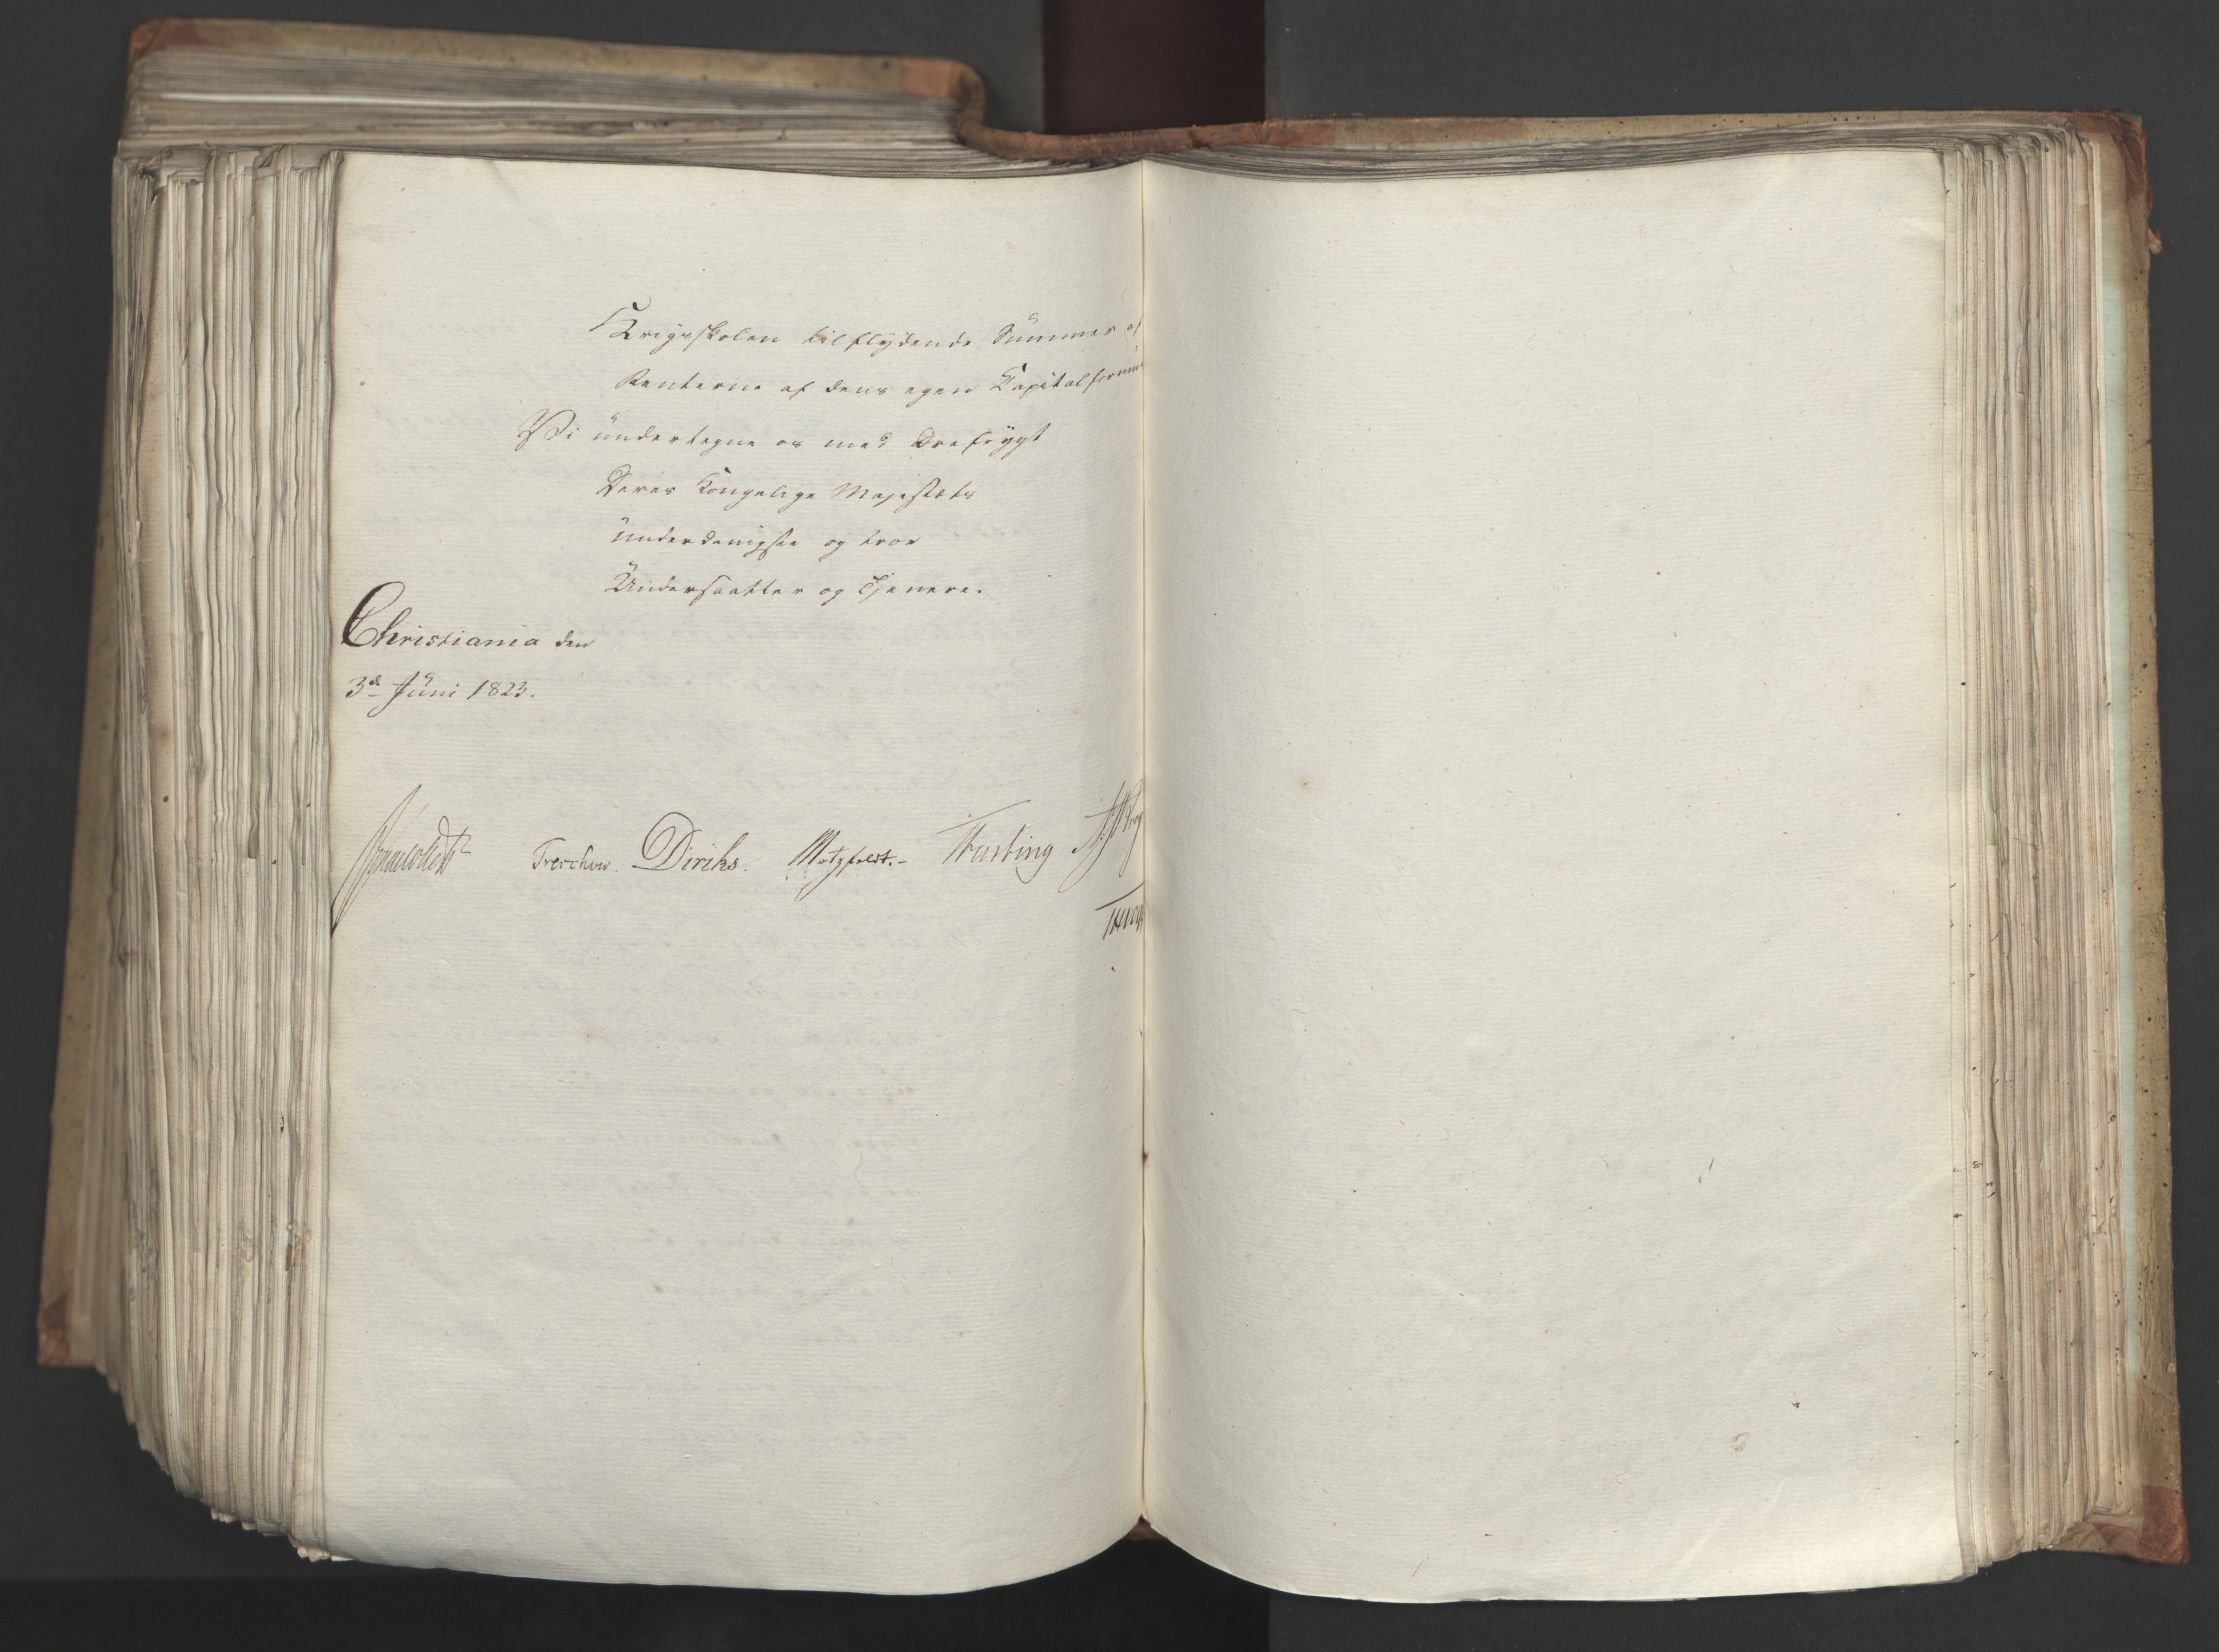 Krigsskolen tilflydende Summer af
Renterne af dens egen Capitalformue
Vi undertegne os med Ærefrygt
Deres Kongelige Majestæts
underdanigste og troe
Undersaatter og Tjenere.
Christiania den
3de Juni 1823.
Sommerhielm Treschow. Diriks. Motzfeldt. Fasting